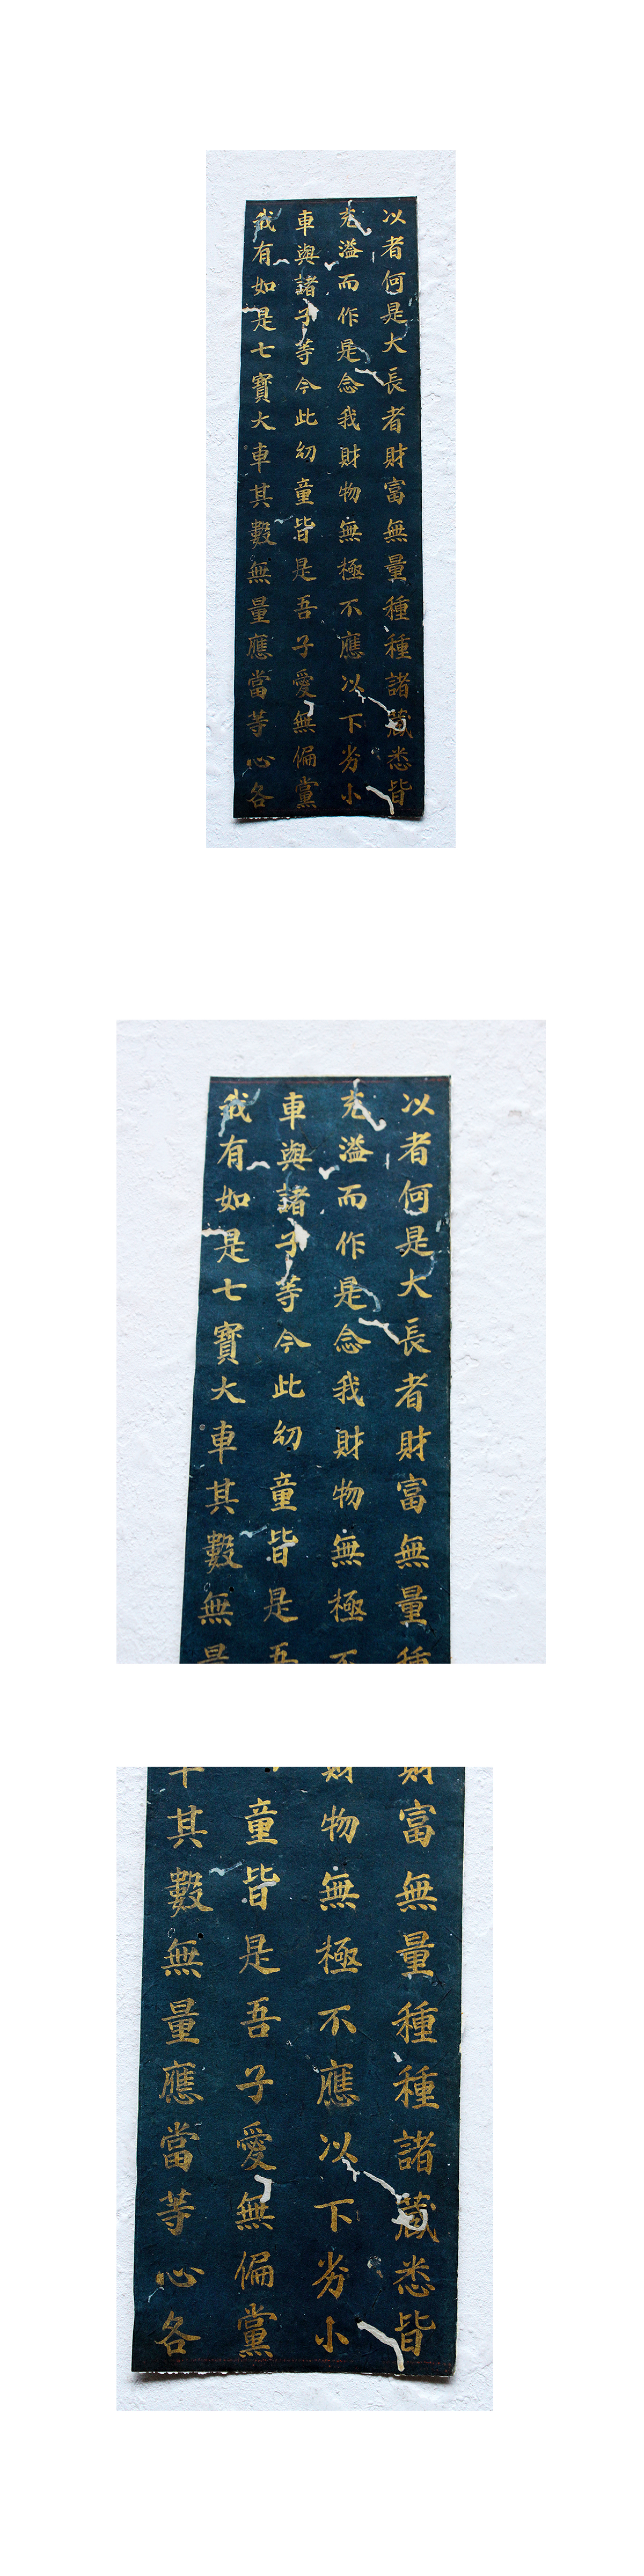 以者何是大長者財富無量種種諸藏悉皆
充溢而作是念我財物無極不應以下劣小
車與諸子等今此幼童皆是吾子愛無偏黨
我有如是七寶大車其數無量應當等心各
以者何是大長者財富無量種
充溢而作是念我財物無極不
車與諸子等今此幼童皆是吾
我有如是七寶大車其數無量
財富無量種種諸藏悉皆
財物無極不應以下劣小
童皆是吾子愛無偏黨
車其數無量應當等心各